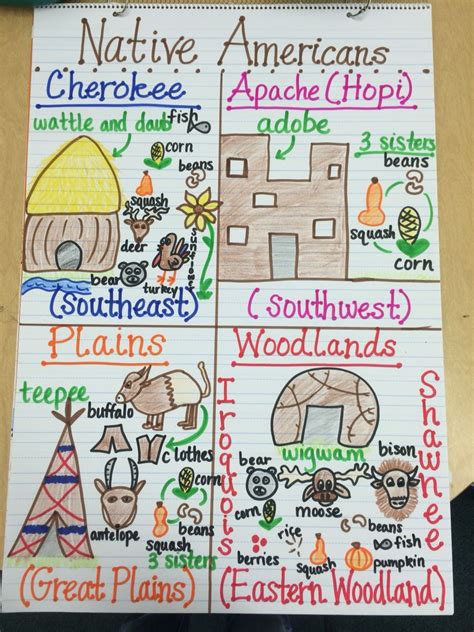 Native Americans
Cherokee
wattle and daub
fish
corn
beans
squash
deer
sunflower
bear
turkey
(Southeast)
Apache (Hopi)
adobe
3 sisters
beans
squash
corn
(Southwest)
Plains
teepee
buffalo
clothes
corn
antelope
beans
squash
3 sisters
(Great Plains)
Woodlands
Iroquois
Shawnee
wigwam
bear
moose
bison
corn
rice
berries
squash
fish
beans
pumpkin
(Eastern Woodland)